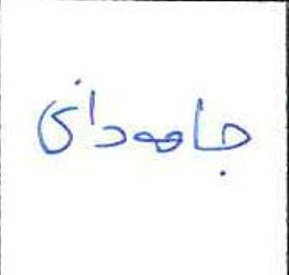 جامودانی